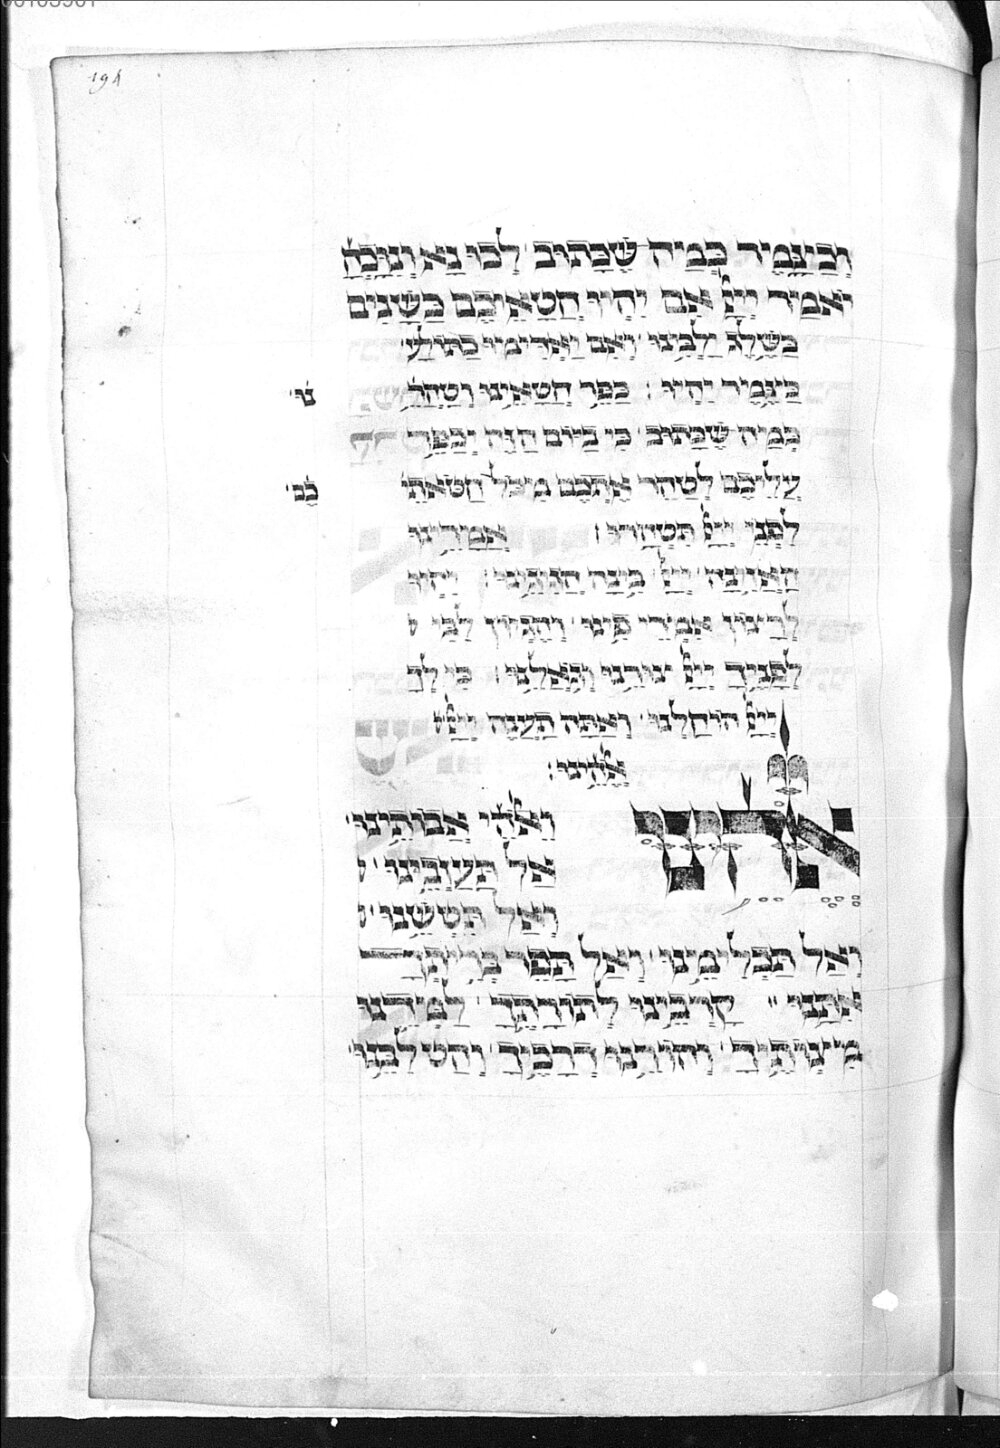 194
וְכַצֶּמֶר כְּמָה שֶׁכָּתוּב לְכוּ נָא וְנִוָּכְחָה
יֹאמַר יְיָ אִם יִהְיוּ חֲטָאֵיכֶם כַּשָּׁנִים
כַּשֶּׁלֶג יַלְבִּינוּ וְאִם יַאְדִּימוּ כַתּוֹלָע
כַּצֶּמֶר יִהְיוּ : כַּפֵּר חֲטָאֵינוּ וְטַהֲרֵ נוּ
כְּמָה שֶׁכָּתוּב כִּי בַיּוֹם הַזֶּה יְכַפֵּר
עֲלֵיכֶם לְטַהֵר אֶתְכֶם מִכֹּל חַטֹּאתֵי כֶם
לִפְנֵי יְיָ תִּטְהָרוּ : אֲמָרֵינוּ
הַאֲזִינָה יְיָ בִּינָה הֲגִיגֵנוּ : יִהְיוּ
לְרָצוֹן אִמְרֵי פִינוּ וְהֶגְיוֹן לִבֵּי
לְפָנֶיךָ יְיָ צוּרֵנוּ וְגֹאֲלֵנוּ : כִּי לְךָ
יְיָ הוֹחַלְנוּ וְאַתָּה תַעֲנֶה יְיָ
אֱלֹהֵינוּ :
אֱלֹהֵינוּ וֵאלֹהֵי אֲבוֹתֵינוּ
אַל תַּעַזְבֵנוּ
וְאַל תִּטְּשֵׁנוּ
וְאַל תַּכְלִימֵנוּ וְאַל תָּפֵר בְּרִיתְךָ
אִתָּנוּ קָרְבֵינוּ לְתוֹרָתֶךָ לַמְּדֵינוּ
מִצְוֹתֶיךָ וְהוֹרֵנוּ דְּרָכֶיךָ וְהַט לִבֵּנוּ